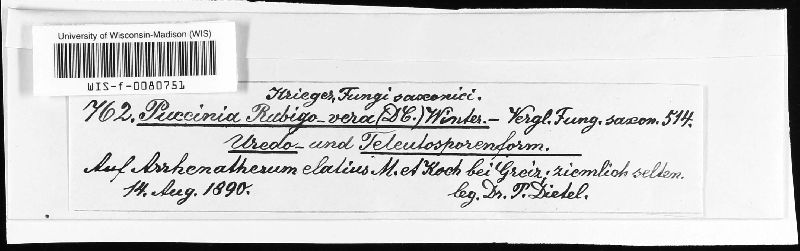 University of Wisconsin-Madison (WIS)
WIS-f-0080751
Krieger, Fungi saxonici.
762. Puccinia Rubigo-vera (DC.) Winter. – Vergl. Fung. saxon. 514.
Uredo- und Teleutosporenform.
Auf Arrhenatherum elatius M. et Koch bei Greiz; ziemlich selten.
14. Aug. 1890. leg. Dr. P. Dietel.